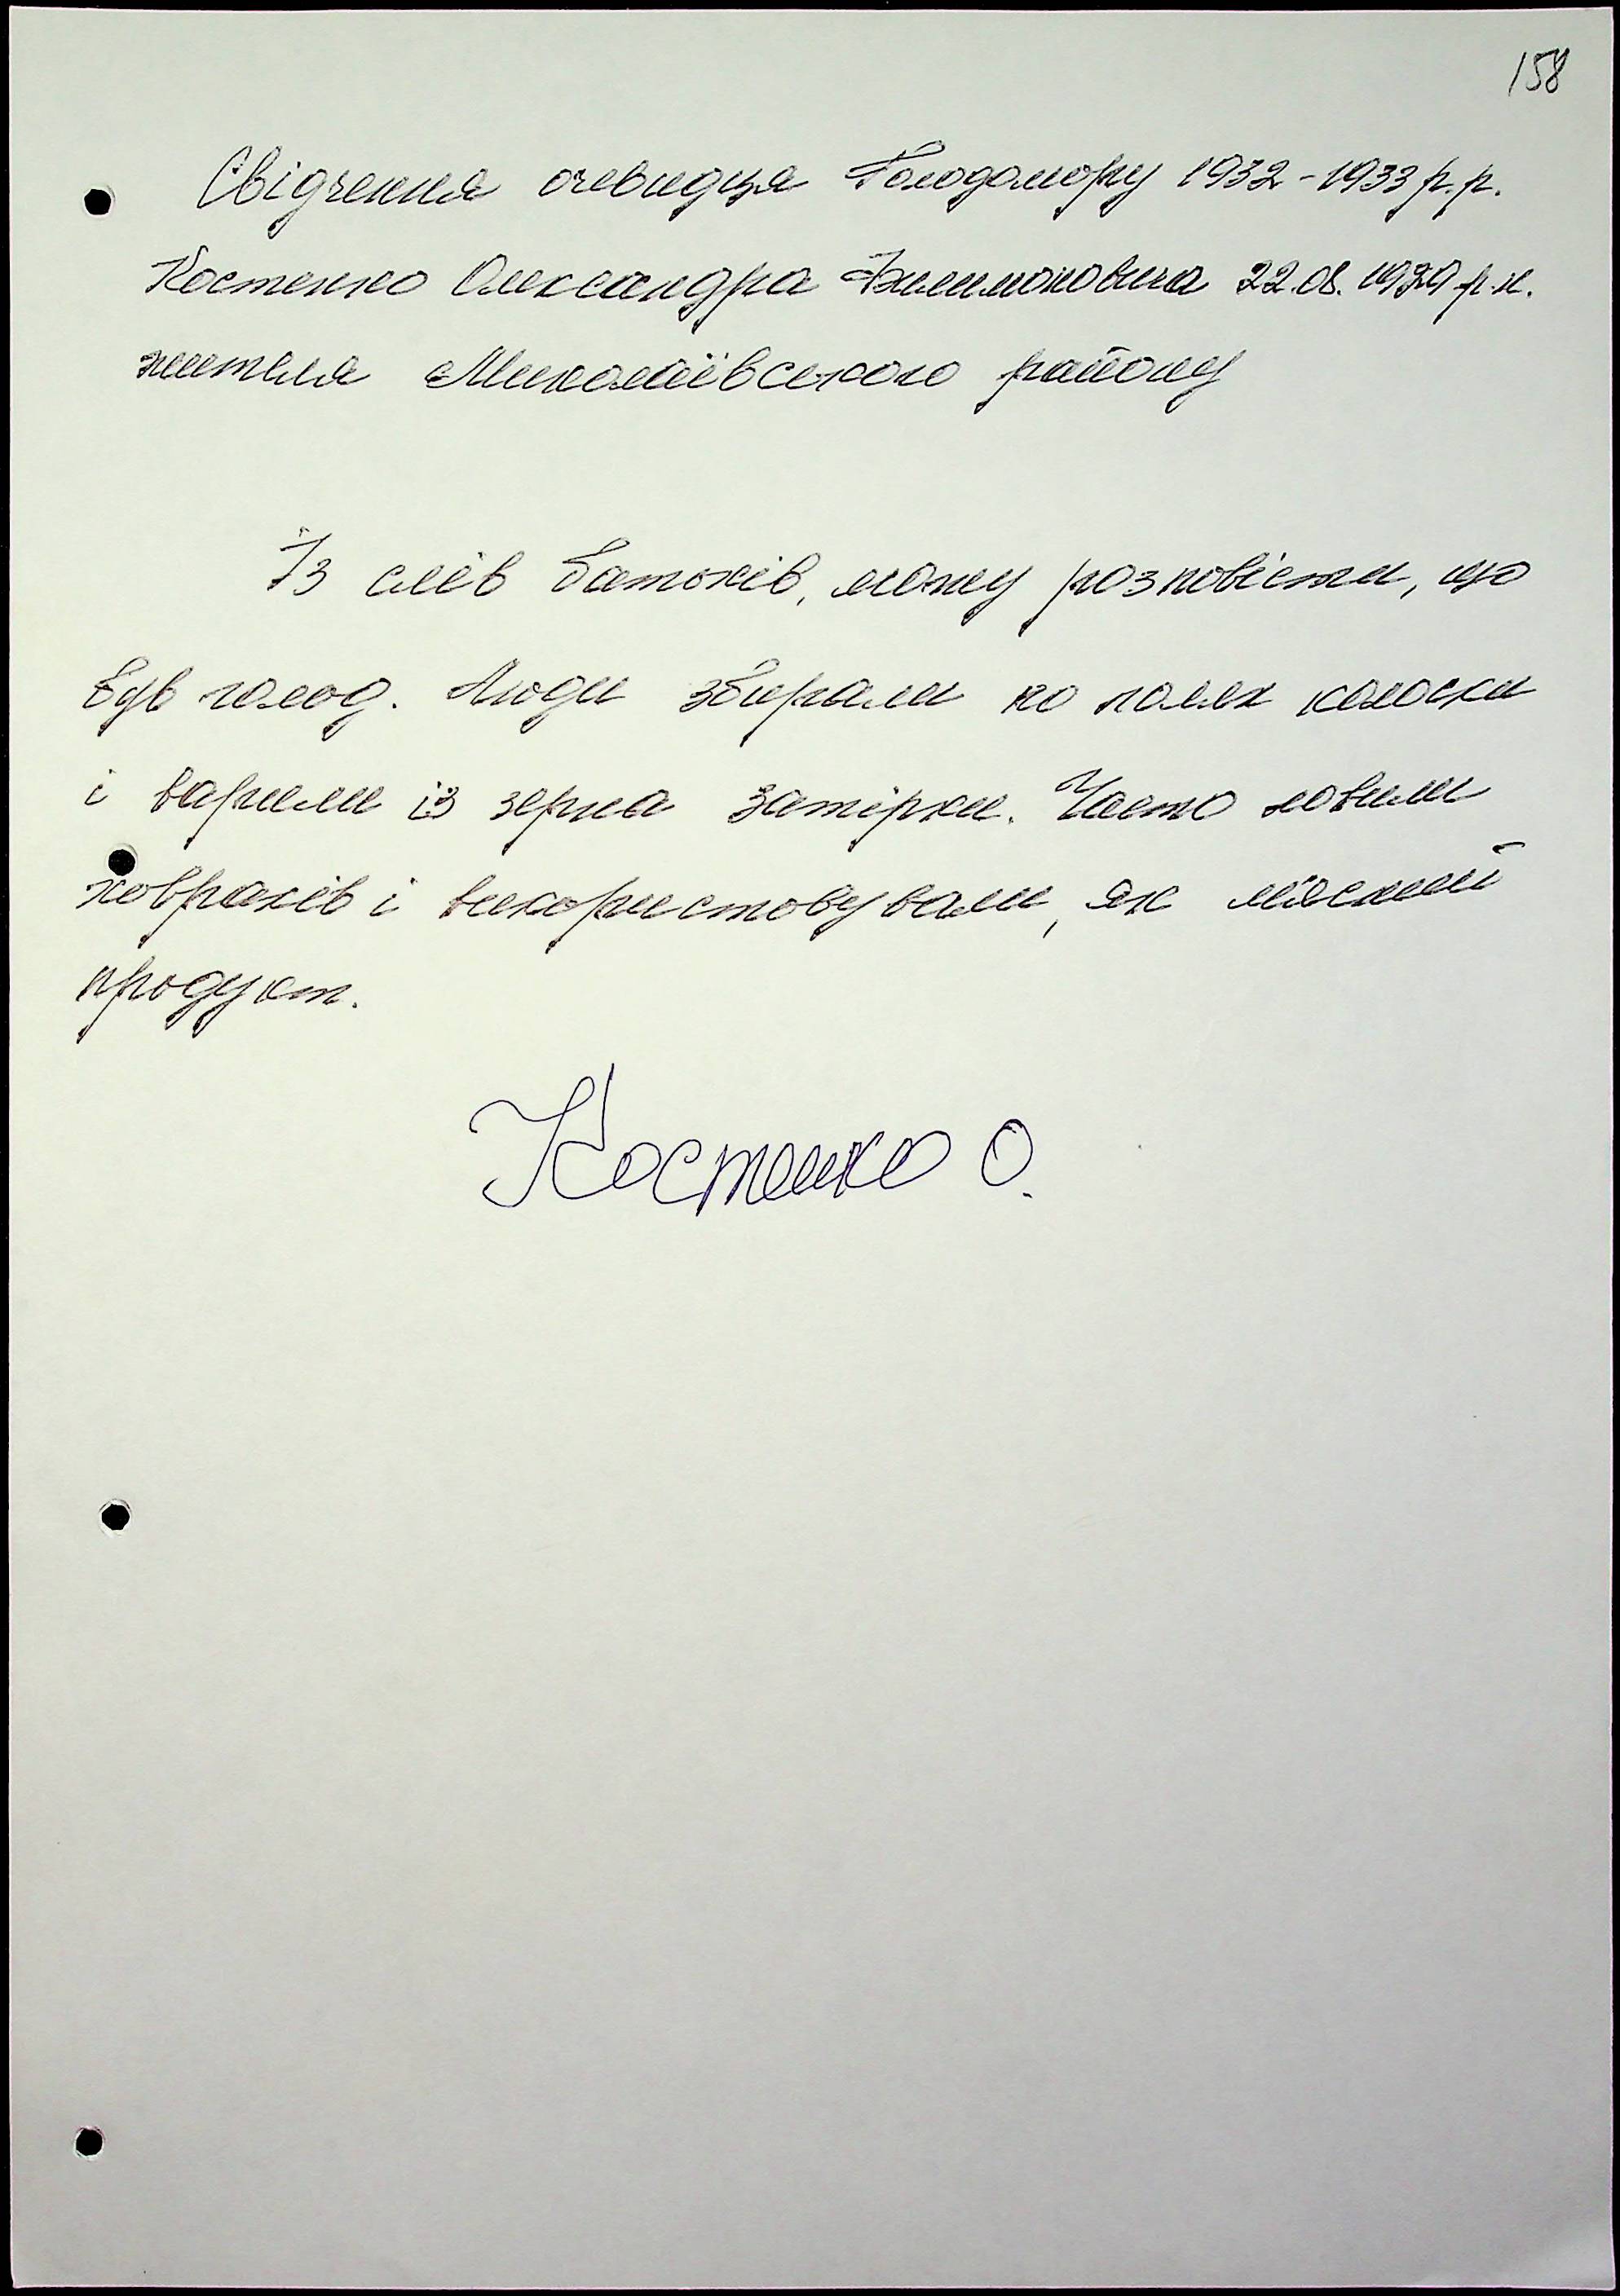 158
Свідчення очевидця Голодомору 1932-1933 р.р.
Костенко Олександра Филимоновича 22.08.1929 р.н.
жителя Миколаївського району
Із слів батьків, можу розповісти, що
був голод. Люди збирали по полях колоски
і варили із зерна затірки. Часто ловили
ховрахів і використовували, як м'ясний
продукт.
Костенко О.